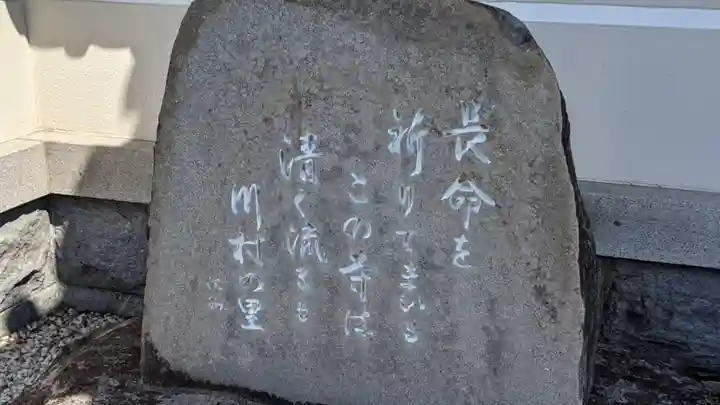 長命を
祈りてまいる
この寺は
清く流るゝ
川村の里